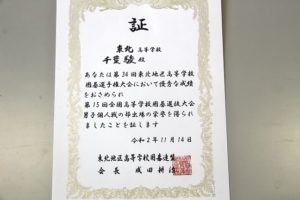 証
東北 高等学校
千葉駿 殿
あなたは第34回東北地区高等学校
囲碁選手権大会において優秀な成績
をおさめられ
第15回全国高等学校囲碁選抜大会
男子個人戦の部出場の栄誉を得られ
ましたことを証します
令和2年11月14日
東北地区高等学校囲碁連盟
会長 成田耕